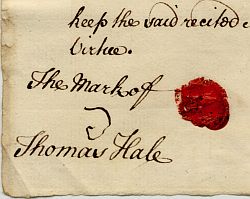 keep the said recited
Virtue.
The Mark of
Thomas Hale